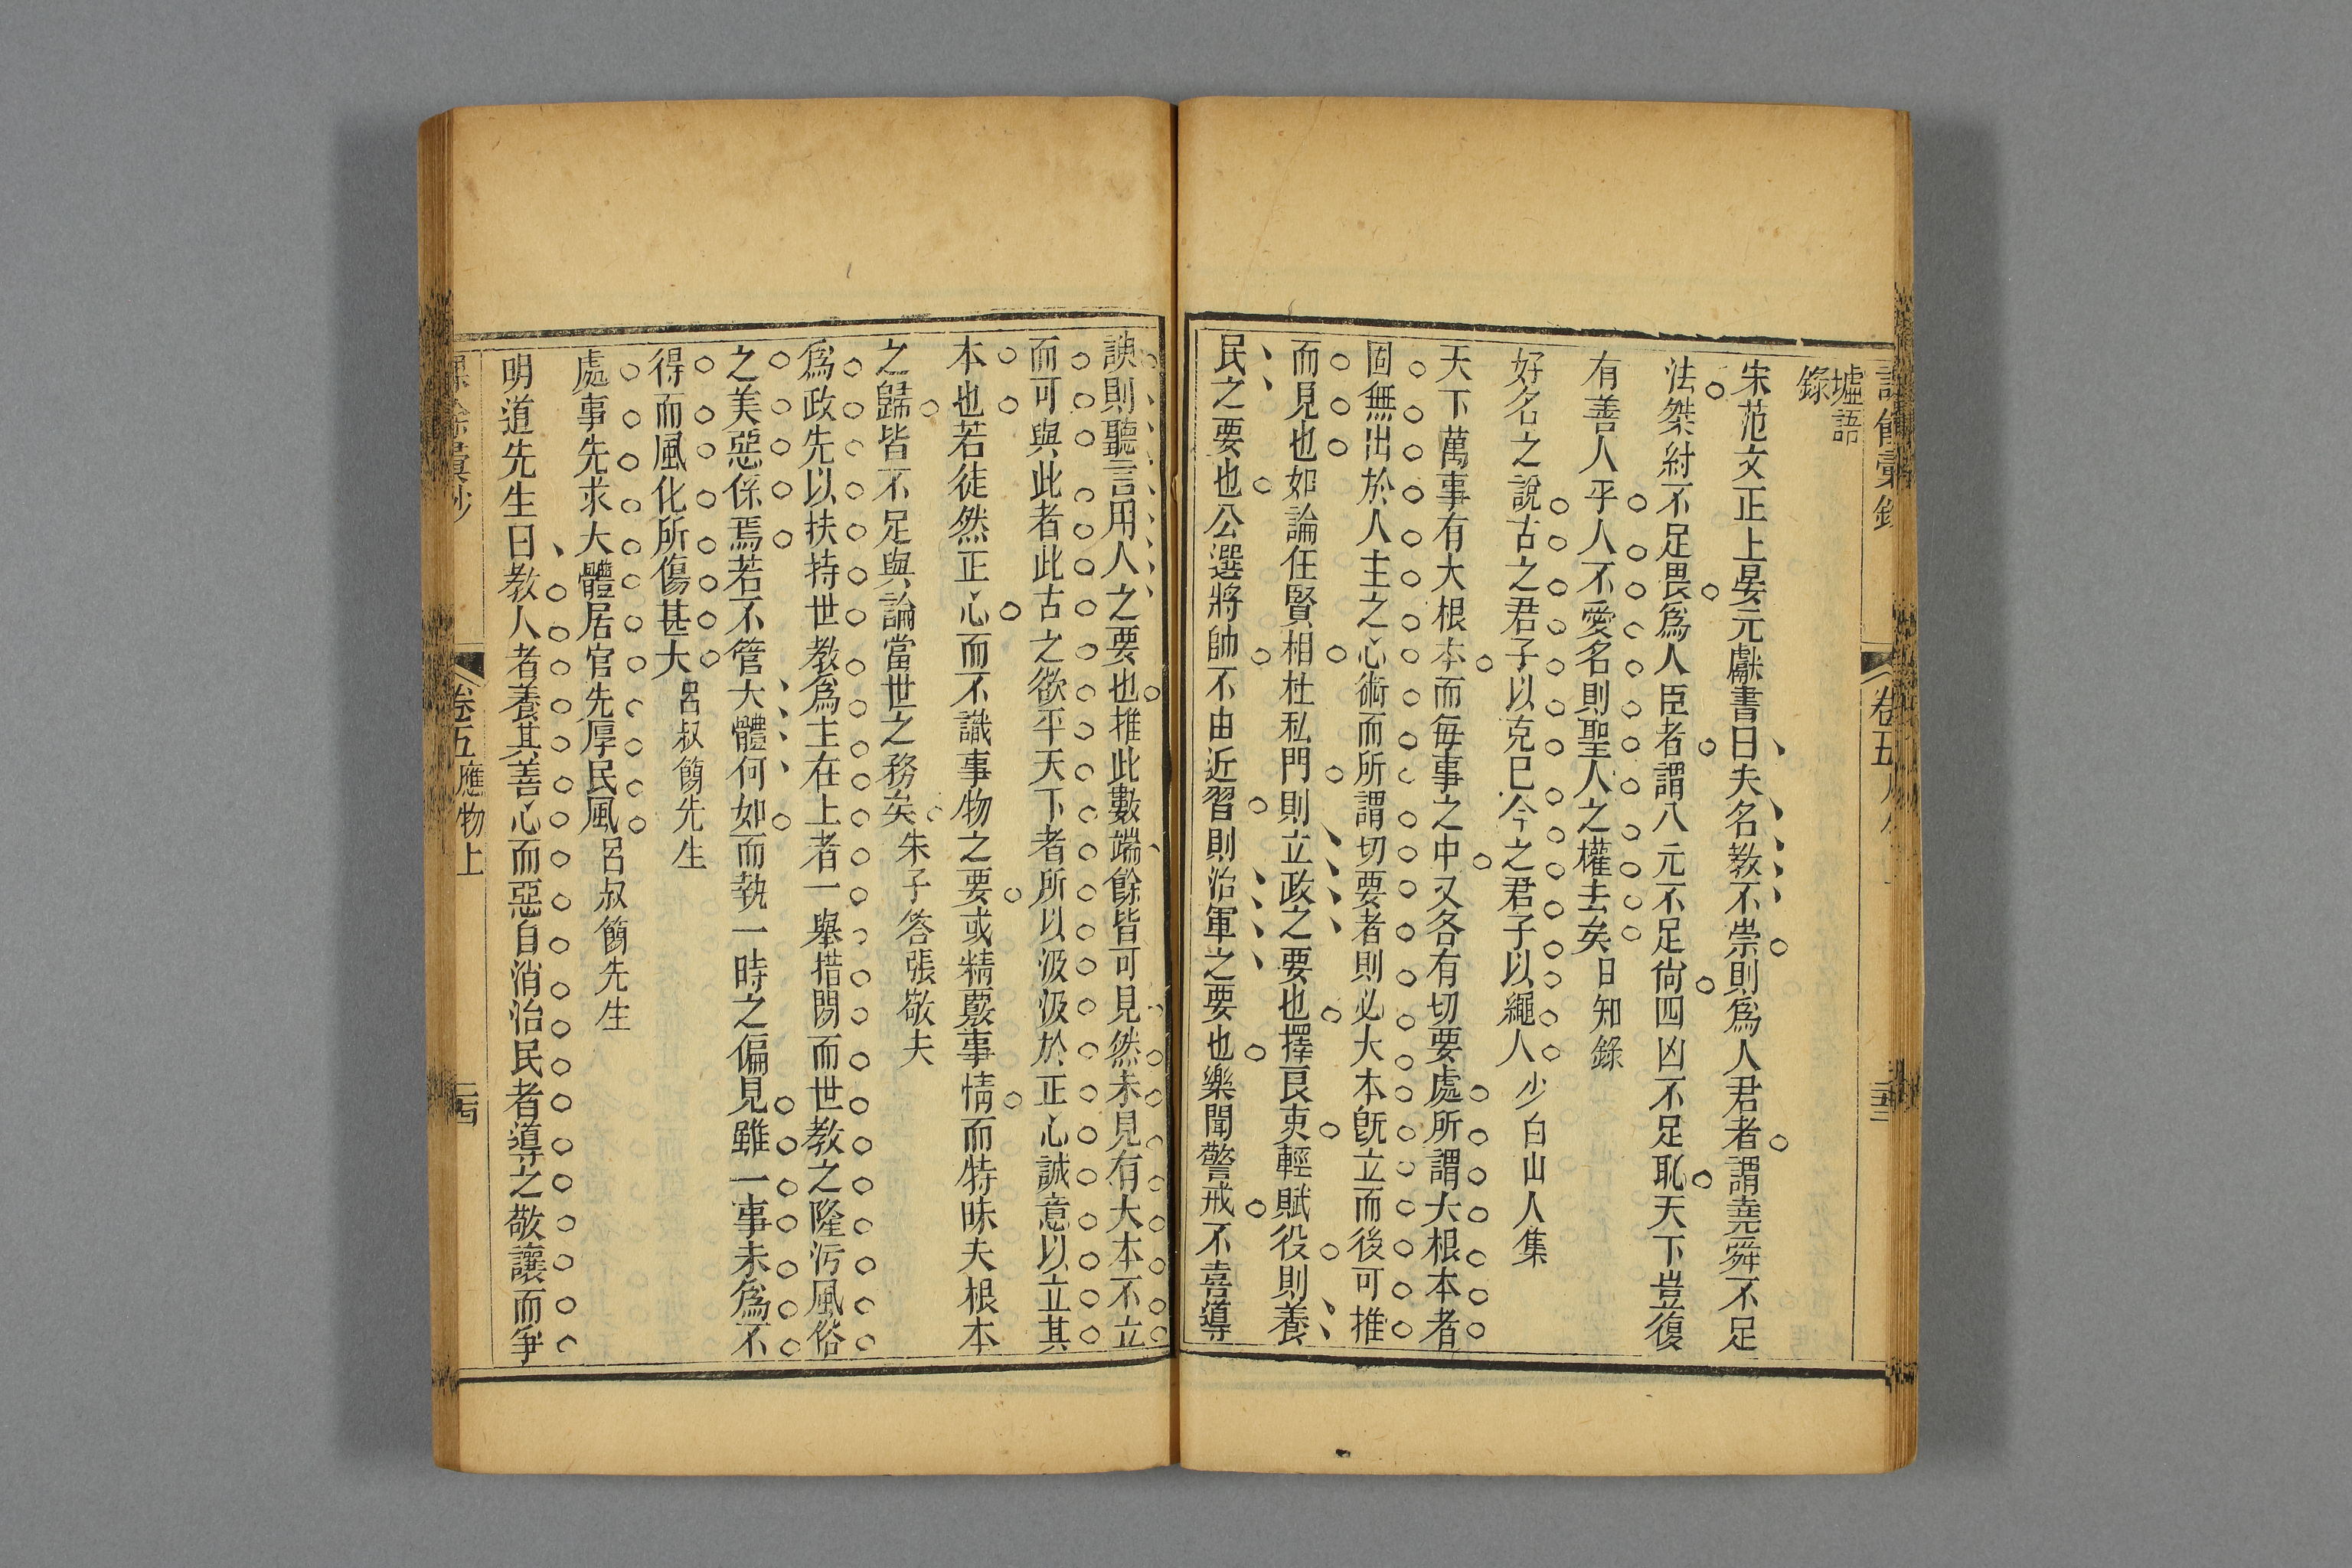 課餘彙鈔
卷五
墟語
錄
宋范文正上晏元獻書曰夫名教不崇則爲人君者謂堯舜不足
法桀紂不足畏爲人臣者謂八元不足尙四凶不足耻天下豈復
有善人乎人不愛名則聖人之權去矣日知錄
好名之說古之君子以克已今之君子以繩人少白山人集
天下萬事有大根本而每事之中又各有切要處所謂大根本者
固無出於人主之心術而所謂切要者則必大本旣立而後可推
而見也如論任賢相杜私門則立政之要也擇良吏輕賦役則養
民之要也公選將帥不由近習則治軍之要也樂聞警戒不喜導
諛則聽言用人之要也推此數端餘皆可見然未見有大本不立
而可與此者此古之欲平天下者所以汲汲於正心誠意以立其
本也若徒然正心而不識事物之要或精覈事情而特昧夫根本
之歸皆不足與論當世之務矣朱子答張敬夫
爲政先以扶持世教爲主在上者一舉措閒而世教之隆污風俗
之美惡係焉若不管大體何如而執一時之偏見雖一事未爲不
得而風化所傷甚大呂叔簡先生
處事先求大體居官先厚民風呂叔簡先生
明道先生曰教人者養其善心而惡自消治民者導之敬讓而爭
課餘彙鈔
卷五應物上